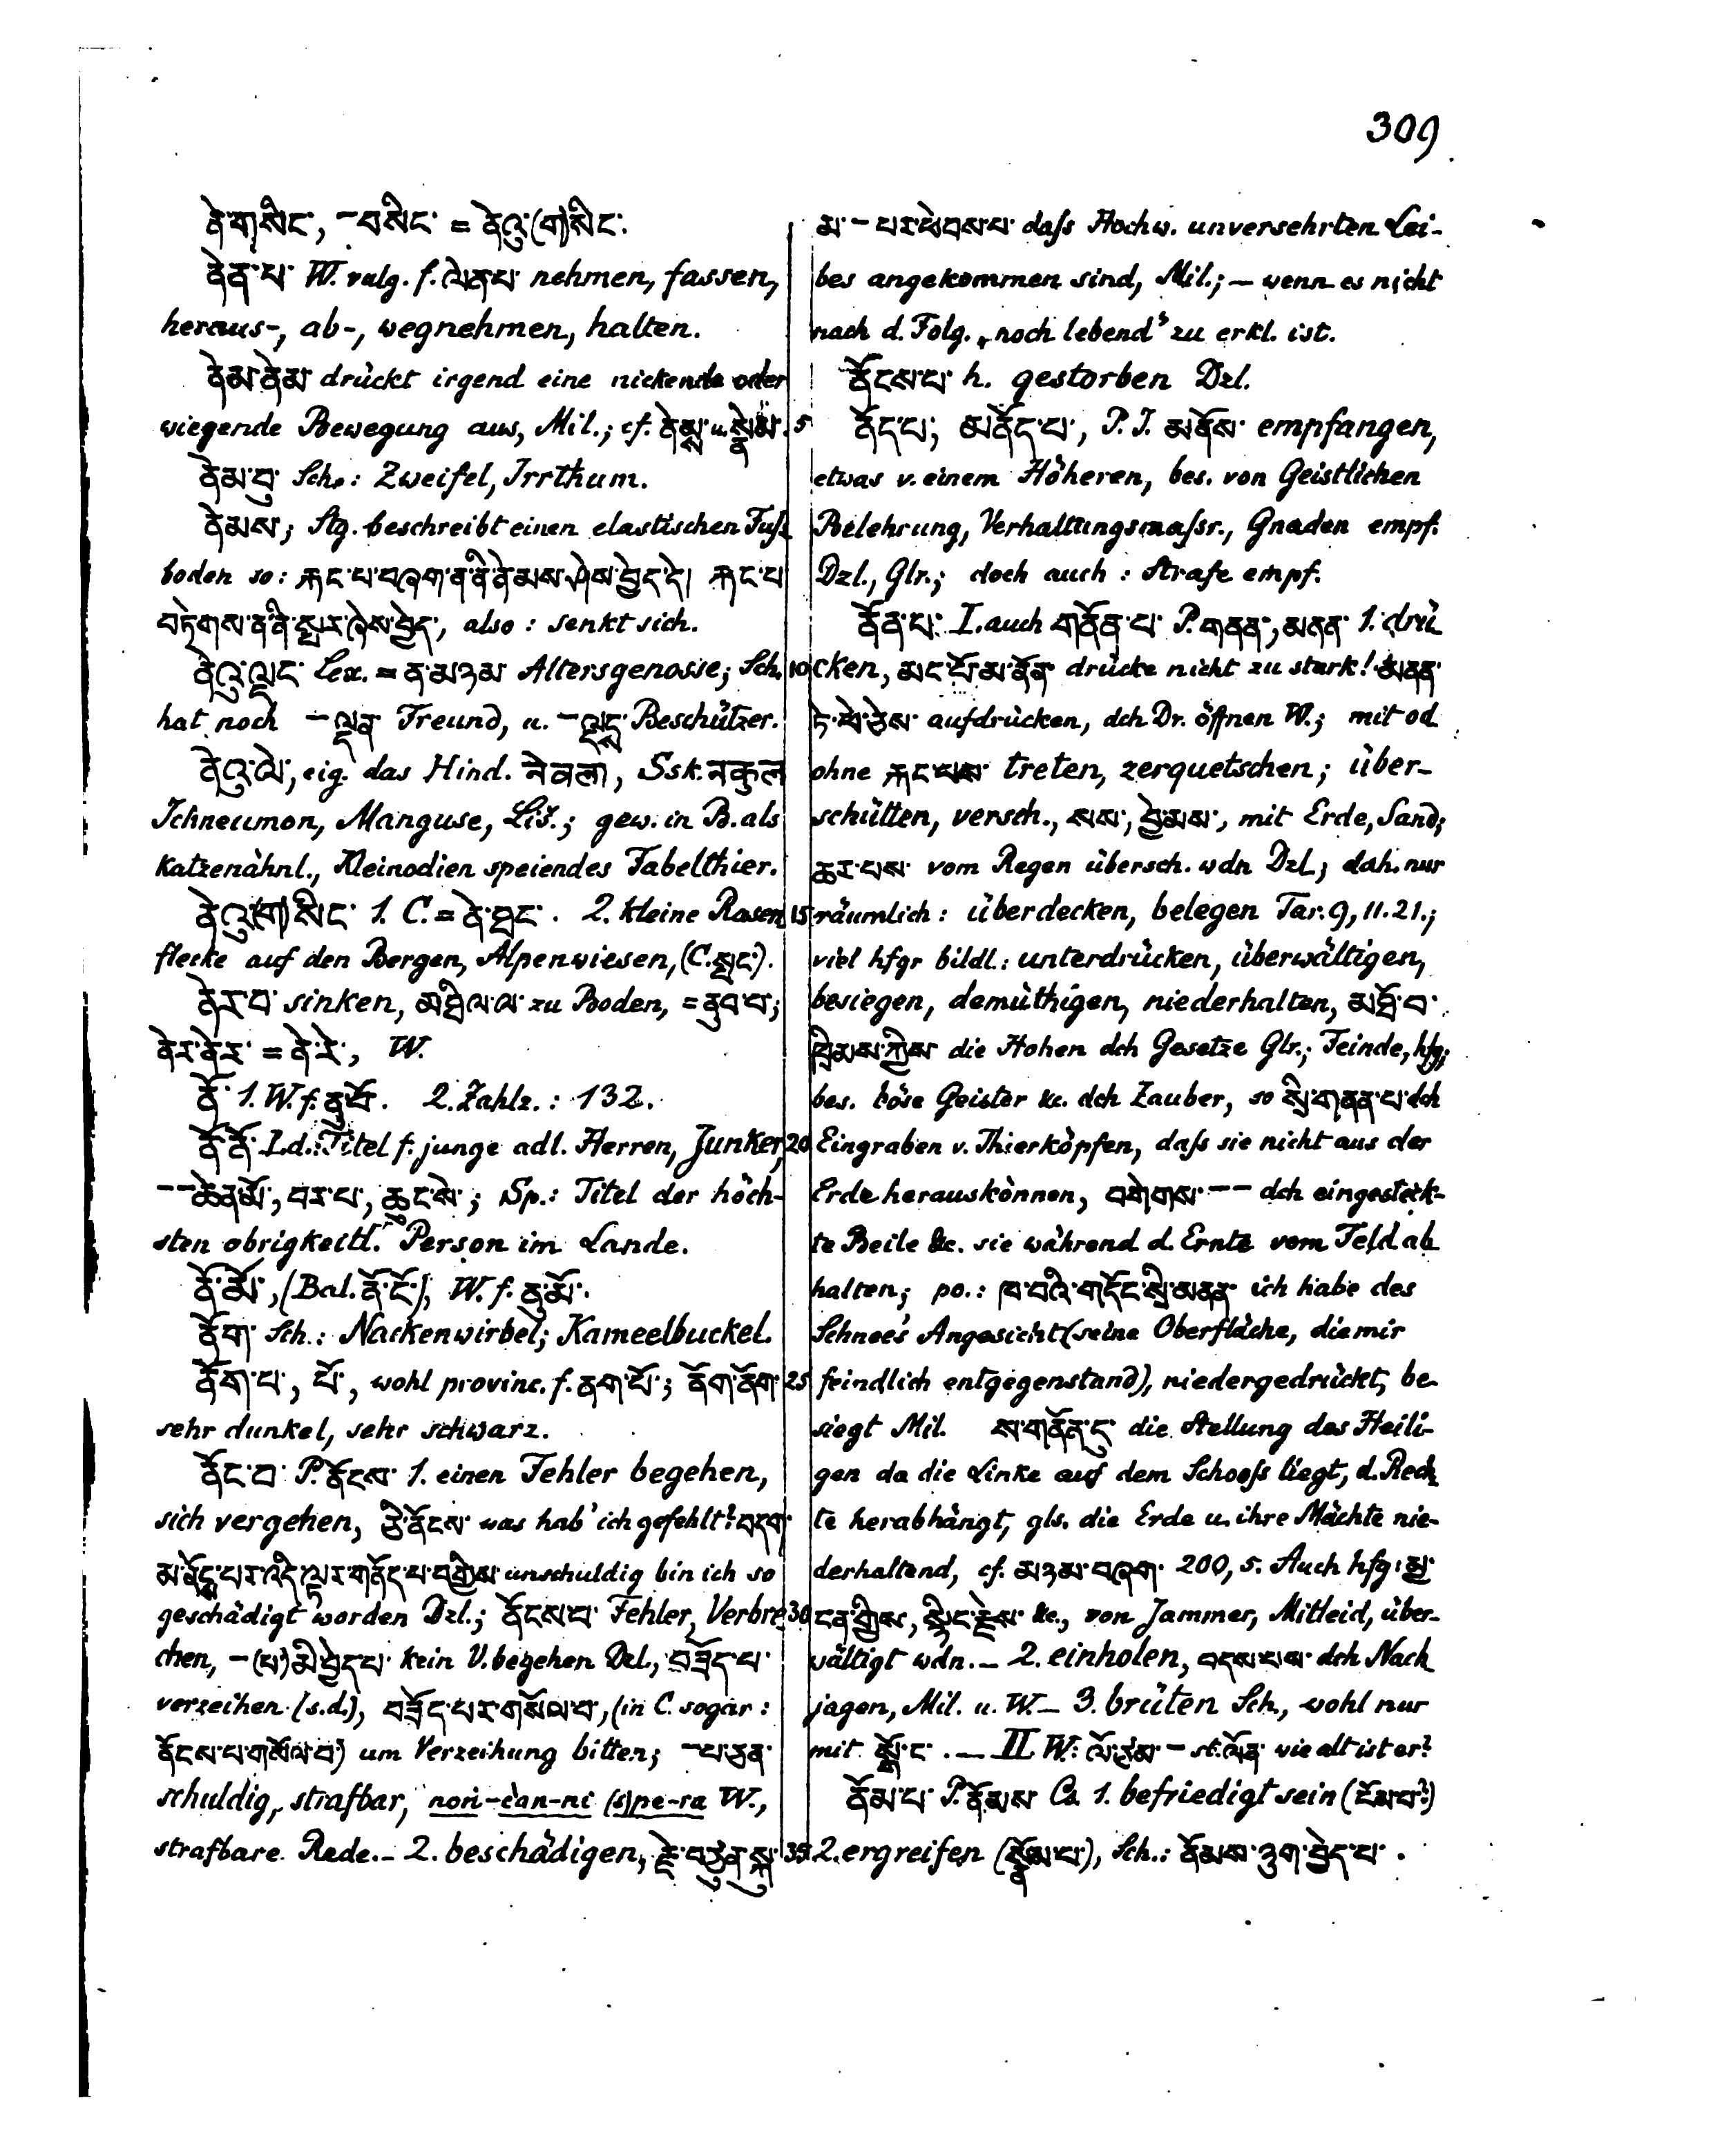 309
ནེ་གསིང་, –བསིང་ = ནེའུ་(ག)སིང་.
ནེན་པ་ W. vulg. f. ལེན་པ་ nehmen, fassen,
heraus-, ab-, wegnehmen, halten.
ནེམ་ནེམ་ drückt irgend eine nickende oder
wiegende Bewegung aus, Mil.; cf.
ནེམ་བུ་ Sch.: Zweifel, Irrthum.
ནེམས; Stg. beschreibt einen elastischen Fuß
boden so: རྐང་པ་བཞག་ན་ནི་ནེམས་ཤེས་བྱེད་དེ། རྐང་པ
བཏེགས་ན་ནི་སྤར་ཞེས་བྱེད་, also: senkt sich.
ནེའུ་ལྡང་ Lex. = ན་མཉམ Altersgenosse; Sch.
hat noch –ལྡན Freund, u. Beschützer.
ནེའུ་ལེ་, eig. das Hind. नेवला, Ssk. नकुल
Ichneumon, Manguse, Liš.; gew. in B. als
katzenähnl., Kleinodien speiendes Fabelthier.
ནེའུ་(ག)སིང་ 1. C. = ནེ་ཐང་. 2. kleine Rasen
flecke auf den Bergen, Alpenwiesen, (C. སྤང་).
ནེར་བ་ sinken, མཐིལ་ལ་ zu Boden, = ནུབ་པ་;
ནེར་ནེར་ = ནེ་རེ་, W.
ནོ་ 1. W. f. ནུ་བོ་. 2. Zahlz.: 132.
ནོ་ནོ་ Ld.: Titel f. junge adl. Herren, Junker,
––ཆེན་མོ་, བར་པ་, ཆུང་སེ་; Sp.: Titel der höch-
sten obrigkeitl. Person im Lande.
ནོ་མོ་, (Bal. ནོ་ངོ་), W. f. ནུ་མོ་.
ནོག་ Sch.: Nackenwirbel; Kameelbuckel.
ནོག་པ་, པོ་, wohl provinc. f. ནག་པོ་; ནོག་ནོག་
sehr dunkel, sehr schwarz.
ནོང་བ་ P. ནོངས་ 1. einen Fehler begehen,
sich vergehen, ཅི་ནོངས་ was hab' ich gefehlt? བདག་
འདི་ལྟར་གནོད་པ་བགྱིས་ unschuldig bin ich so
geschädigt worden Dzl.; ནོངས་པ་ Fehler, Verbre-
chen, –(པ་)མི་བྱེད་པ་ kein V. begehen Dzl., བཟོད་པ་
verzeihen (s.d.), བཟོད་པར་གསོལ་བ་, (in C. sogar:
ནོངས་པ་གསོལ་བ་) um Verzeihung bitten; –པ་ཅན་
schuldig, strafbar, (s)pe-ra W.,
strafbare Rede.– 2. beschädigen, རྗེ་བཙུན་སྐུ་
མ་–པར་ཕེབས་པ་ daſs Hochw. unversehrten Lei-
bes angekommen sind, Mil.; – wenn es nicht
nach d. Folg. „noch lebend" zu erkl. ist.
ནོངས་པ་ h. gestorben Dzl.
5 ནོད་པ་; མནོད་པ་, P. I. མནོས་ empfangen,
etwas v. einem Höheren, bes. von Geistlichen
Belehrung, Verhaltungsmaſsr., Gnaden empf.
Dzl., Glr.; doch auch: Strafe empf.
ནོན་པ་: I. auch གནོན་པ་ P. གནན་, མནན་ 1. drü
10 cken, མང་པོ་མ་ནོན་ drücke nicht zu stark! མནན་
ཏེ་ཕེ་ཅེས་ aufdrücken, dch Dr. öffnen W.; mit od.
ohne རྐང་པས་ treten, zerquetschen; über-
schütten, versch., སས་, བྱེ་མས་, mit Erde, Sand;
ཆར་པས་ vom Regen übersch. wdn Dzl; dah. nur
15 räumlich: überdecken, belegen Tar. 9, 11. 21.;
viel hfgr bildl.: unterdrücken, überwältigen,
besiegen, demüthigen, niederhalten, མཐོ་བ་
ཁྲིམས་ཀྱིས་ die Hohen dch Gesetze Glr.; Feinde, hfg;
bes. böse Geister &c. dch Zauber, so སྲི་གནན་པ་ dch
20 Eingraben v. Thierköpfen, daſs sie nicht aus der
Erde herauskönnen, བགེགས་–– dch eingesteck-
te Beile &c. sie während d. Ernte vom Feld ab
halten; po.: ཁ་བའི་གདོང་སྲི་མནན་ ich habe des
Schnee's Angesicht (seine Oberfläche, die mir
25 feindlich entgegenstand), niedergedrückt, be-
siegt Mil. ས་གནོན་དུ་ die Stellung des Heili-
gen da die Linke auf dem Schooſs liegt, d. Rech
te herabhängt, gls. die Erde u. ihre Mächte nie-
derhaltend, cf. མཉམ་བཞག་ 200, 5. Auch hfg: མྱ་
30 ངན་གྱིས་, སྙིང་རྗེས་ &c., von Jammer, Mitleid, über-
wältigt wdn.– 2. einholen, བདས་པས་ dch Nach
jagen, Mil. u. W.– 3. brüten Sch., wohl nur
mit སྒོ་ང་. – II W: ལོ་ཙམ་– st. ལོན་ wie alt ist er?
ནོམ་པ་ P. ནོམས Cs 1. befriedigt sein (ངོམ་པ་?)
35 2. ergreifen (སྙོམ་པ་), Sch.: ནོམས་ཉུག་བྱེད་པ་.